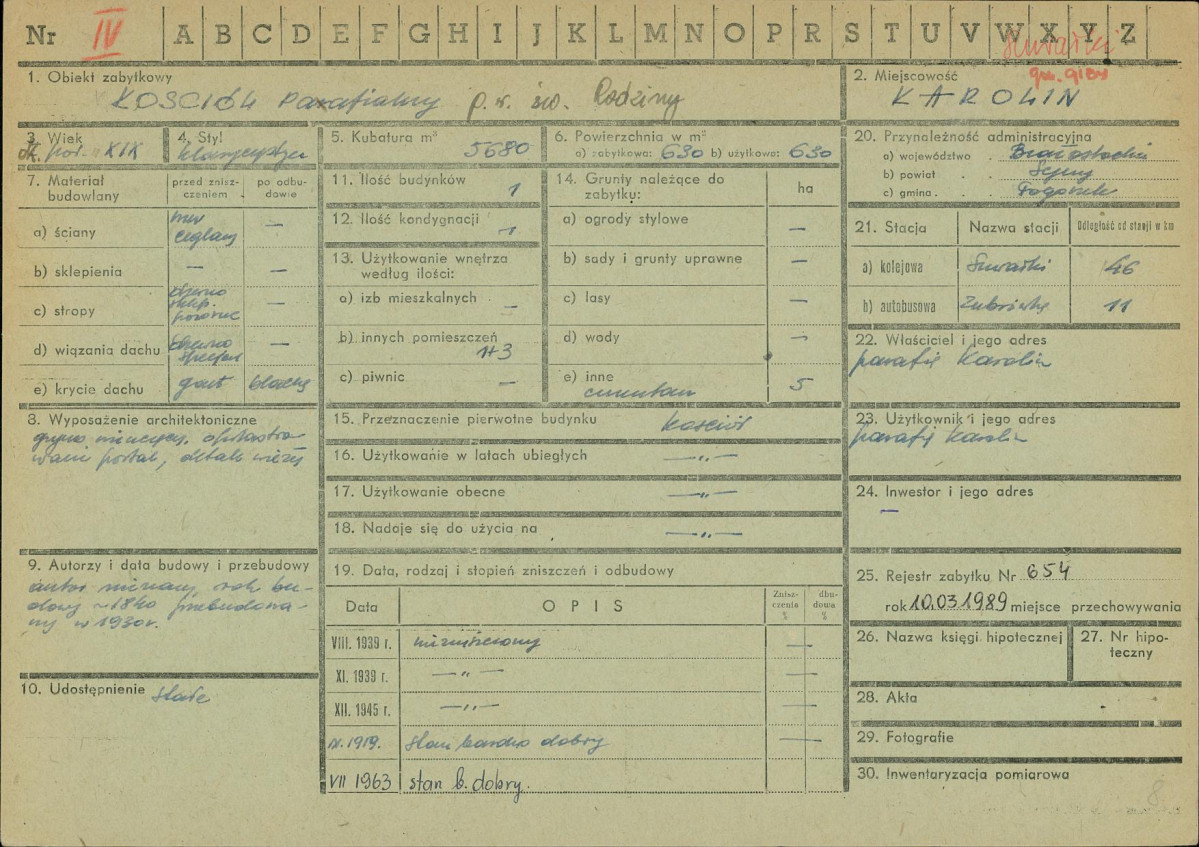 Nr IV A B C D E F G H I J K L M N O P R S T U V W X Y Z
Suwałki
gm. GIBY
1. Obiekt zabytkowy
KOSCIÓŁ Parafialny p.w. św. Rodziny
2. Miejscowość
KAROLIN
3. Wiek
ok. poł. XIX
4. Styl
5. Kubatura m³
5680
6. Powierzchnia w m²
a) zabytkowa: 630 b) użytkowa: 630
20. Przynależność administracyjna
a) województwo . Białostockie
b) powiat . . Sejny
c) gmina . . Pogorzelec
7. Materiał budowlany
przed zniszczeniem
po odbudowie
a) ściany
mur ceglany —
b) sklepienia — —
c) stropy
drewno —
d) wiązania dachu
drewno —
e) krycie dachu gont blachy
11. Ilość budynków 1
12. Ilość kondygnacji 1
13. Użytkowanie wnętrza
według ilości:
a) izb mieszkalnych —
b) innych pomieszczeń
1+3
c) piwnic —
14. Grunty należące do
zabytku:
ha
a) ogrody stylowe —
b) sady i grunty uprawne —
c) lasy —
d) wody —
e) inne
cmentarz 5
21. Stacja Nazwa stacji Odległość od stacji w km
a) kolejowa Suwałki 46
b) autobusowa 11
22. Właściciel i jego adres
parafia Karolin
8. Wyposażenie architektoniczne
portal, detale wieży
15. Przeznaczenie pierwotne budynku kościół
16. Użytkowanie w latach ubiegłych —„—
17. Użytkowanie obecne —„—
18. Nadaje się do użycia na —„—
23. Użytkownik i jego adres
parafia Karolin
24. Inwestor i jego adres
—
9. Autorzy i data budowy i przebudowy
autor nieznany, rok bu-
dowy ~1840 przebudowa-
ny w 1930r.
10. Udostępnienie stałe
19. Data, rodzaj i stopień zniszczeń i odbudowy
Data OPIS Zniszczenia % dbudowa %
VIII. 1939 r. niezniszczony —
XI. 1939 r. —„— —
XII. 1945 r. —„— —
stan bardzo dobry —
VII 1963 stan b. dobry.
25. Rejestr zabytku Nr 654
rok 10.03.1989 miejsce przechowywania
26. Nazwa księgi hipotecznej
27. Nr hipo-
teczny
28. Akta
29. Fotografie
30. Inwentaryzacja pomiarowa
8